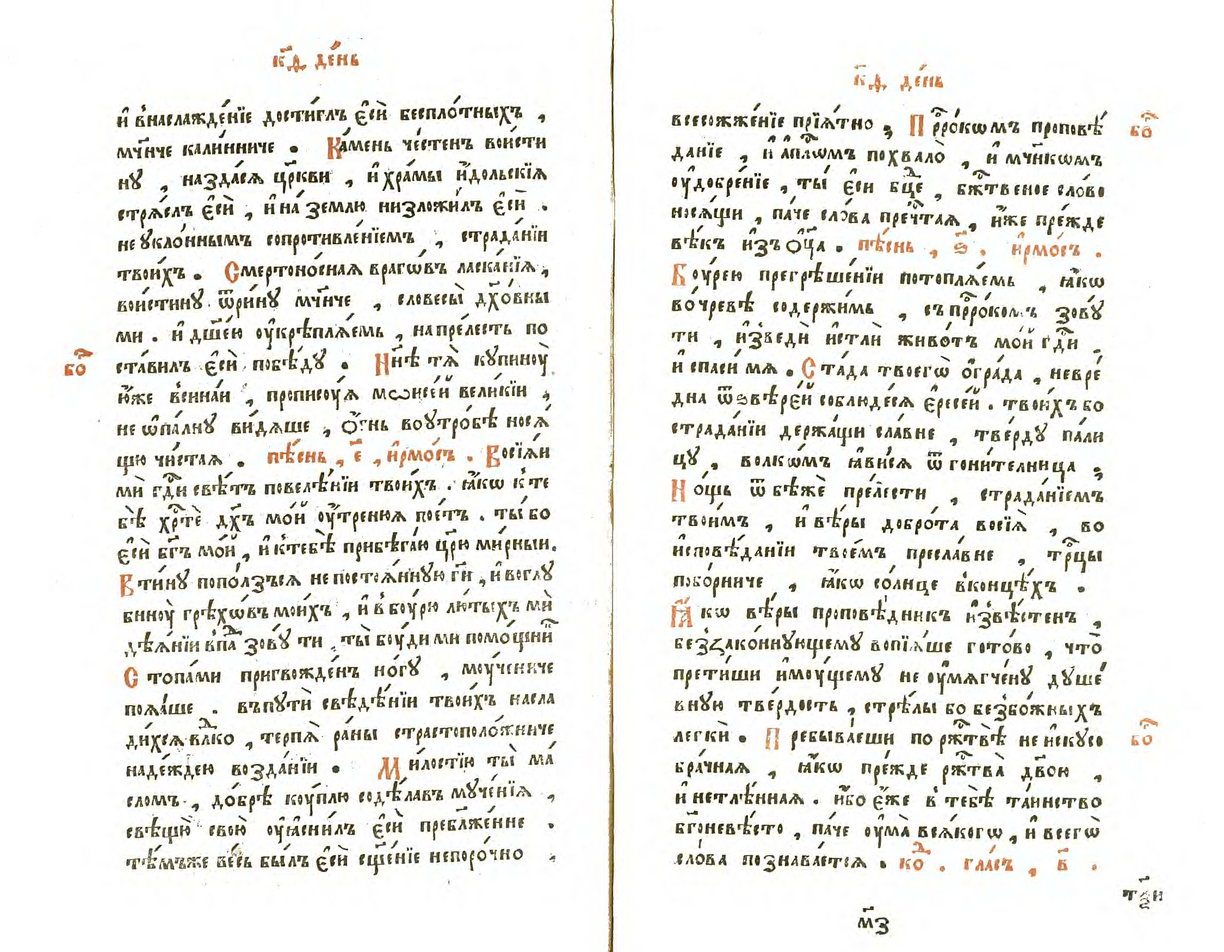 к҃д де́нь
и҆ внаслажде́нїе дости́глъ є҆сѝ беспло́тныхъ ,
мч҃нче кали́нниче . Ка́мень че́стенъ вои́сти
ну , назда́сѧ цр҃кви , и҆ хра́мы и҆́дольскїѧ
стрѧ́слъ є҆сѝ , и҆ на́ землю низложи́лъ є҆сѝ .
неуклоннымъ сопротивле́нїемъ , страда́нїи
твои́хъ . Смертоно́снаѧ враго́въ ласка́нїѧ ,
вои́стину ѿри́нꙋ мч҃нче , словесы̀ дх҃о́вны
ми . и҆ дш҃е́ю оу҆крѣплѧ́емь , на пре́лесть по
ста́вилъ є҆сѝ побѣ́дꙋ . Нн҃ѣ тѧ̀ купино́ꙋ
бо
ю҆́же всина́и , прописоуѧ мѡисе́й вели́кїи ,
не ѡ҆па́лну ви́дѧше , ѻ҆́гнь воутро́бѣ носѧ́
щю чи́стаѧ . пѣ́снь , є҃ , и҆рмо́съ . Восїѧ́и
мѝ гд҃и свѣ́тъ повелѣ́нїи твои́хъ . ꙗ҆́кѡ к те
бѣ̀ хр҃тѐ дх҃ъ мо́й оу҆́тренюѧ пое́тъ . ты́ бо
є҆сѝ бг҃ъ мо́й , и҆ к тебѣ̀ прибѣга́ю цр҃ю ми́рныи.
В ти́нꙋ попо́лзъсѧ непостоѧ́нную гд҃и , и҆ воглꙋ
биноу грѣхо́въ мои́хъ , и҆ в боу́рю лю́тыхъ мѝ
дѣѧ́нїи впа́д зовꙋ̀ ти , ты̀ боу́ди ми помо́щникъ
С топа́ми пригвожде́нъ но́гꙋ , моу́чениче
поѧ́ше . въ пути́ свѣдѣ́нїи твои́хъ насла
ди́хсѧ влⷣко , терпѧ̀ ра́ны страстополо́жниче
наде́ждею возда́нїи . Ми́лостїю ты̀ ма́
сломъ , до́брѣ коу́плю содѣ́лавъ муче́нїѧ ,
свѣщꙋ̀ свою̀ оу҆ꙗсни́лъ є҆сѝ пребл҃же́нне .
тѣ́мъже ве́сь бы́лъ є҆сѝ сщ҃е́нїе непоро́чно .
к҃д де́нь
всесожже́нїе прїѧ́тно ; Прⷪ҇ро́кѡмъ проповѣ́
бо
да́нїе , и҆ а҆пⷭ҇лѡмъ похвало̀ , и҆ мч҃нкѡмъ
оу҆добре́нїе , ты̀ є҆сѝ бц҃е , бж҃твеное сло́во
носѧ́щи , па́че сло́ва пречⷭ҇таѧ , и҆́же пре́жде
вѣ́къ и҆зъ ѻ҆ц҃а̀ . пѣ́снь , ѕ҃ . и҆рмо́съ .
Боу́рею прегрѣше́нїи потоплѧ́емь , ꙗ҆́кѡ
во чре́вѣ содержи́мь , съ прⷪ҇ро́комъ зовꙋ̀
ти , и҆зведѝ и҆стлѝ живо́тъ мо́й гд҃и .
и҆ спаси́ мѧ . Ста́да твоегѡ̀ ѻ҆гра́да , невре́
дна ѿ ѕвѣре́й соблюде́сѧ є҆ресе́й . твои́хъ бо
страда́нїи держа́щи сла́вне , тве́рдꙋ пали
цꙋ , волкѡ́мъ ꙗ҆ви́сѧ ѿгони́телница ;
Но́щь ѿбѣ́же пре́лести , страда́нїемъ
твои́мъ , и҆ вѣ́ры добро́та восїѧ̀ , во
и҆сповѣ́данїи твое́мъ пресла́вне , трⷪ҇цы
побо́рниче , ꙗ҆́кѡ со́лнце в конце́хъ .
Ꙗ҆́ кѡ вѣ́ры проповѣ́дникъ и҆звѣ́стенъ ,
безꙁако́ннующемꙋ вопїѧ́ше гото́во , что̀
прети́ши и҆моу́щемꙋ не оу҆мѧгче́нꙋ дꙋше́
внꙋю тве́рдость , стрѣ́лы бо безбо́жныхъ
легкѝ . Пребыва́еши по рж҃твѣ̀ не и҆скꙋсо
бо
бра́чнаѧ , ꙗ҆́кѡ пре́жде рж҃тва̀ дв҃ою ,
и҆ нетлѣ́ннаѧ . и҆́бо є҆́же в тебѣ̀ та́инство
бг҃оневѣ́сто , па́че оу҆ма̀ всѧ́когѡ , и҆ всегѡ̀
сло́ва познава́етсѧ . коⷣ . гла́съ , в҃ .
м҃з